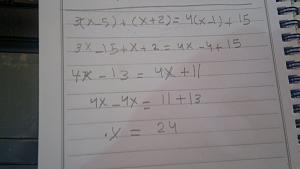 3(x-5) + (x+2) = 4(x-1) + 15
3x-15+x+2 = 4x-4+15
4x - 13 = 4x+11
4x-4x = 11+13
x = 24